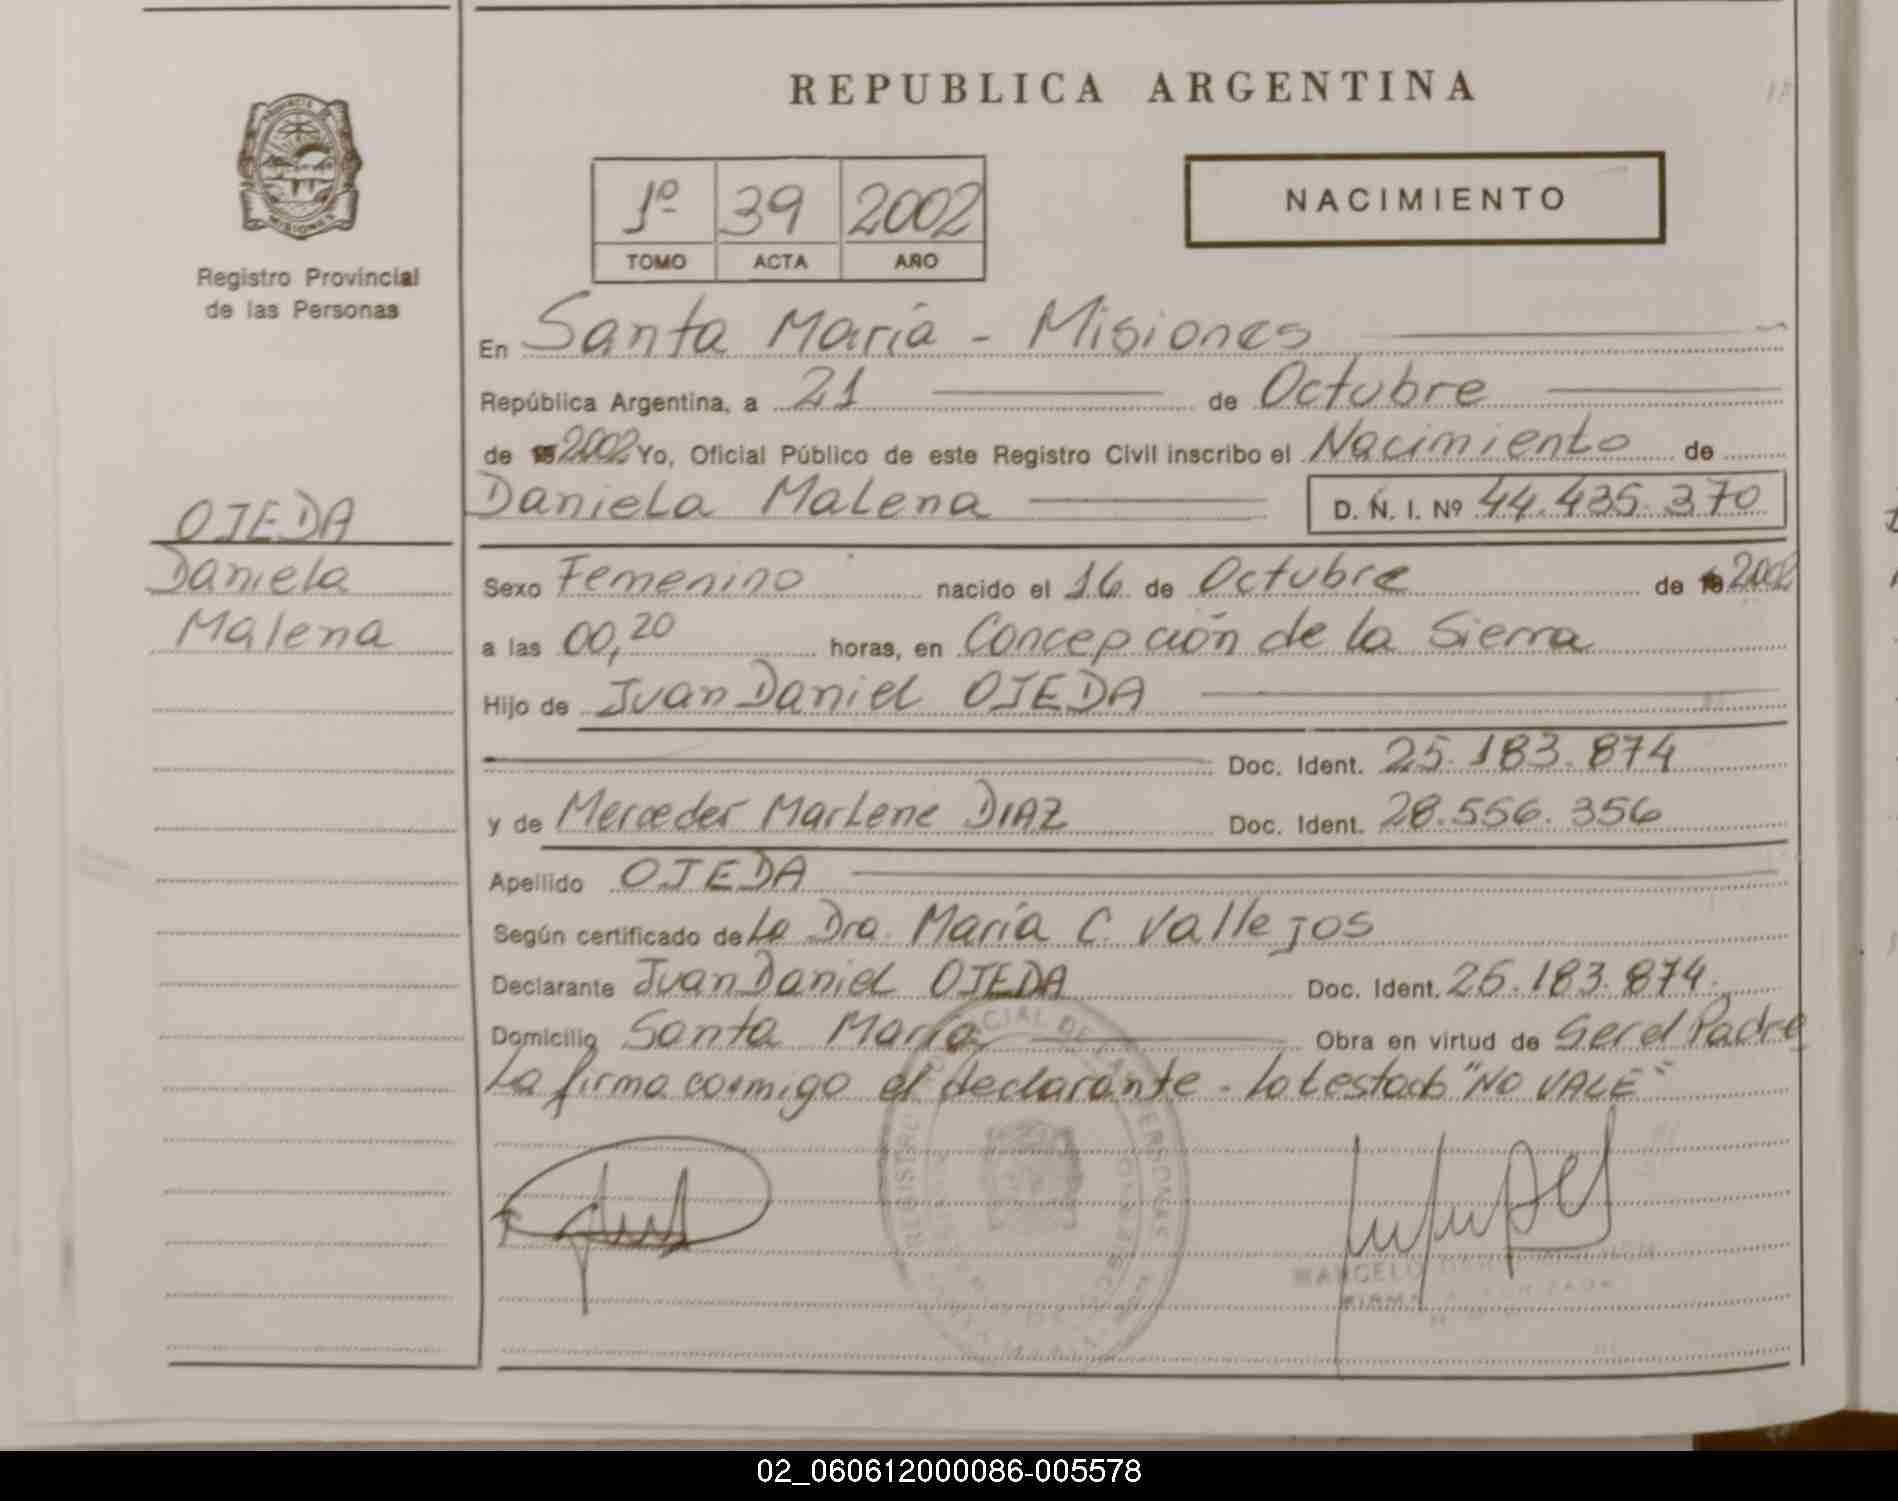 REPUBLICA ARGENTINA
1º 39 2002
TOMO ACTA AÑO
NACIMIENTO
Registro Provincial
de las Personas
En Santa María - Misiones
República Argentina, a 21 de Octubre
de 2002 Yo, Oficial Público de este Registro Civil inscribo el Nacimiento de
Daniela Malena D. N. I. Nº 44.435.370
OJEDA
Daniela
Malena
Sexo Femenino nacido el 16 de Octubre de 2002
a las 00,20 horas, en Concepción de la Sierra
Hijo de Juan Daniel OJEDA
Doc. Ident. 25.183.874
y de Mercedes Marlene DIAZ Doc. Ident. 28.556.356
Apellido OJEDA
Según certificado de La Dra. María C. Vallejos
Declarante Juan Daniel OJEDA Doc. Ident. 25.183.874.
Domicilio Santa María Obra en virtud de Ser el Padre
La firma conmigo el declarante - Lo testado "NO VALE"
MARCELO
FIRMA
02_060612000086-005578